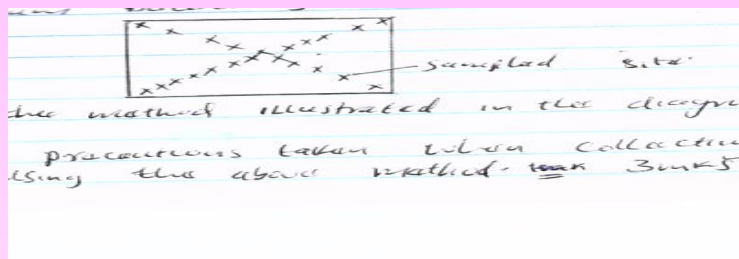 sampled site.
the method illustrated in the diagra
precautions taken when collectin
using the above method. 3mks